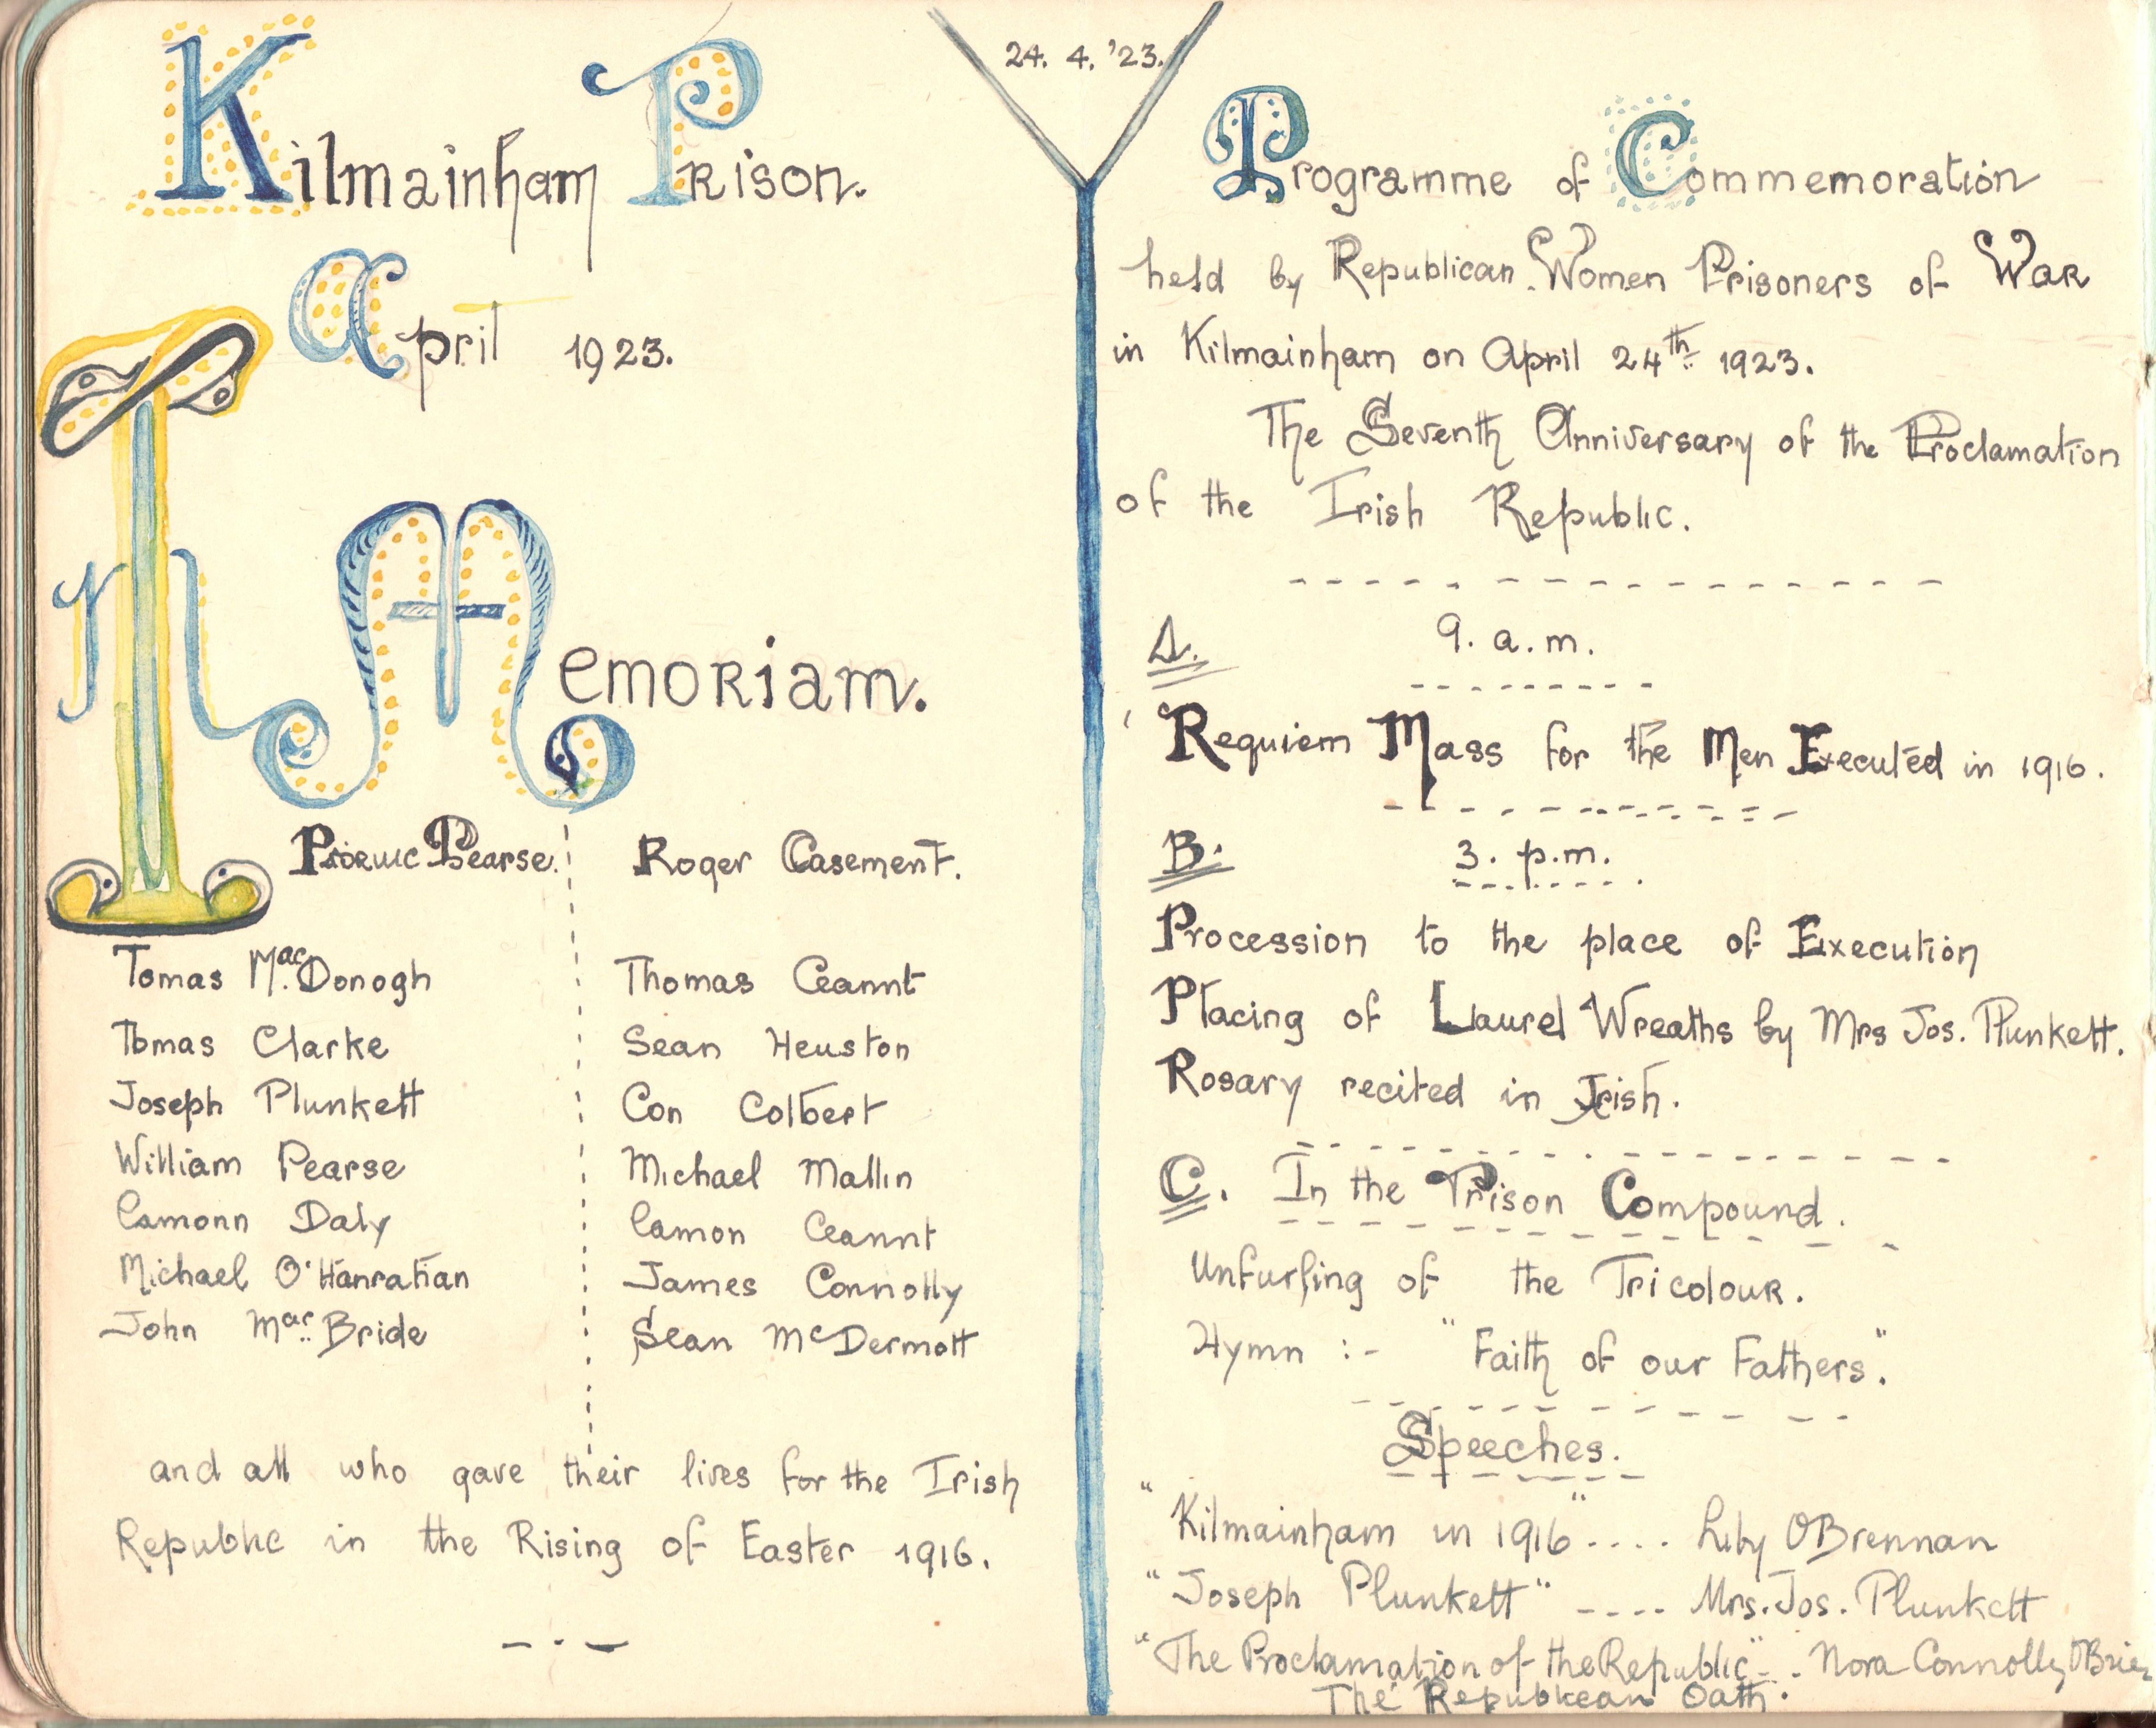 Kilmainham Prison.
April 1923.
In Memoriam.
Pádraic Pearse. Roger Casement.
Tomas MacDonogh Thomas Ceannt
Tomas Clarke Sean Heuston
Joseph Plunkett Con Colbert
William Pearse Michael Mallin
Eamonn Daly Eamon Ceannt
Michael O'Hanrahan James Connolly
John MacBride Sean McDermott
and all who gave their lives for the Irish
Republic in the Rising of Easter 1916.
24. 4. '23.
Programme of Commemoration
held by Republican Women Prisoners of War
in Kilmainham on April 24th 1923.
The Seventh Anniversary of the Proclamation
of the Irish Republic.
A. 9. a.m.
Requiem Mass for the Men Executed in 1916.
B. 3. p.m.
Procession to the place of Execution
Placing of Laurel Wreaths by Mrs Jos. Plunkett.
Rosary recited in Irish.
C. In the Prison Compound.
Unfurling of the Tricolour.
Hymn :- "Faith of our Fathers."
Speeches.
"Kilmainham in 1916" .... Lily O'Brennan
"Joseph Plunkett" .... Mrs. Jos. Plunkett
"The Proclamation of the Republic" .. Nora Connolly O'Brien
The Republican Oath.